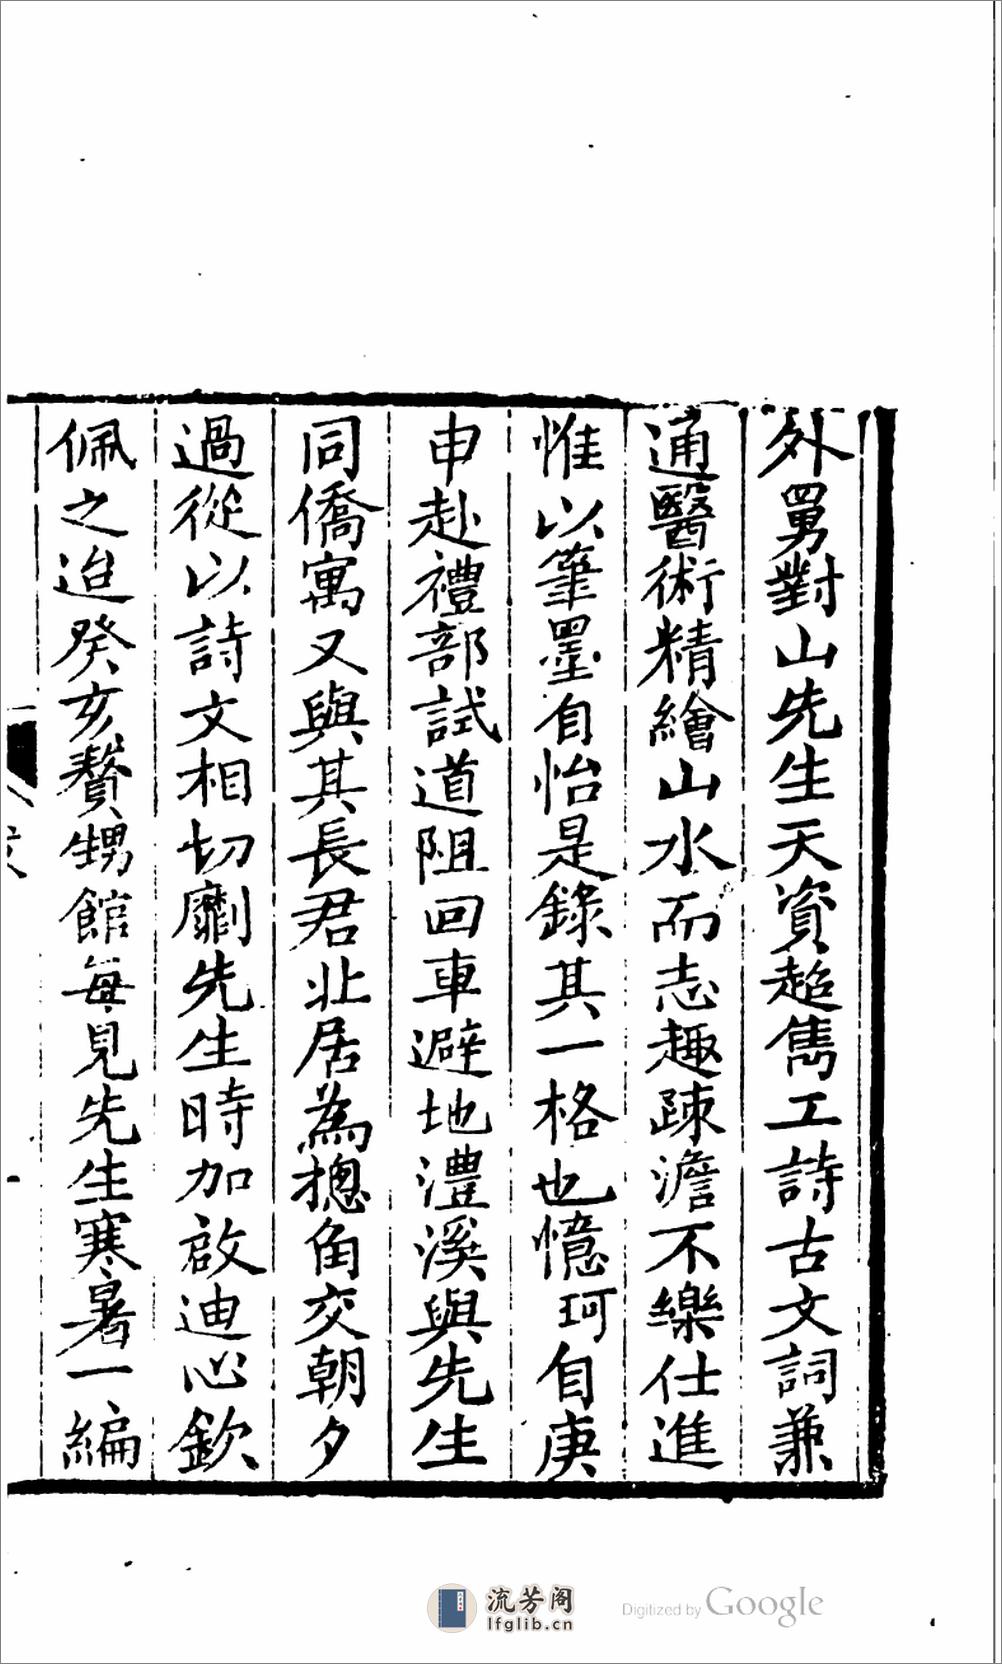 外舅對山先生天資超雋工詩古文詞兼
通醫術精繪山水而志趣疎澹不樂仕進
惟以筆墨自怡是錄其一格也憶珂自庚
申赴禮部試道阻回車避地澧溪與先生
同僑寓又與其長君北居為摠角交朝夕
過從以詩文相切劘先生時加啟迪心欽
佩之迨癸亥贅甥館每見先生寒暑一編
流芳阁
lfglib.cn
Digitized by Google